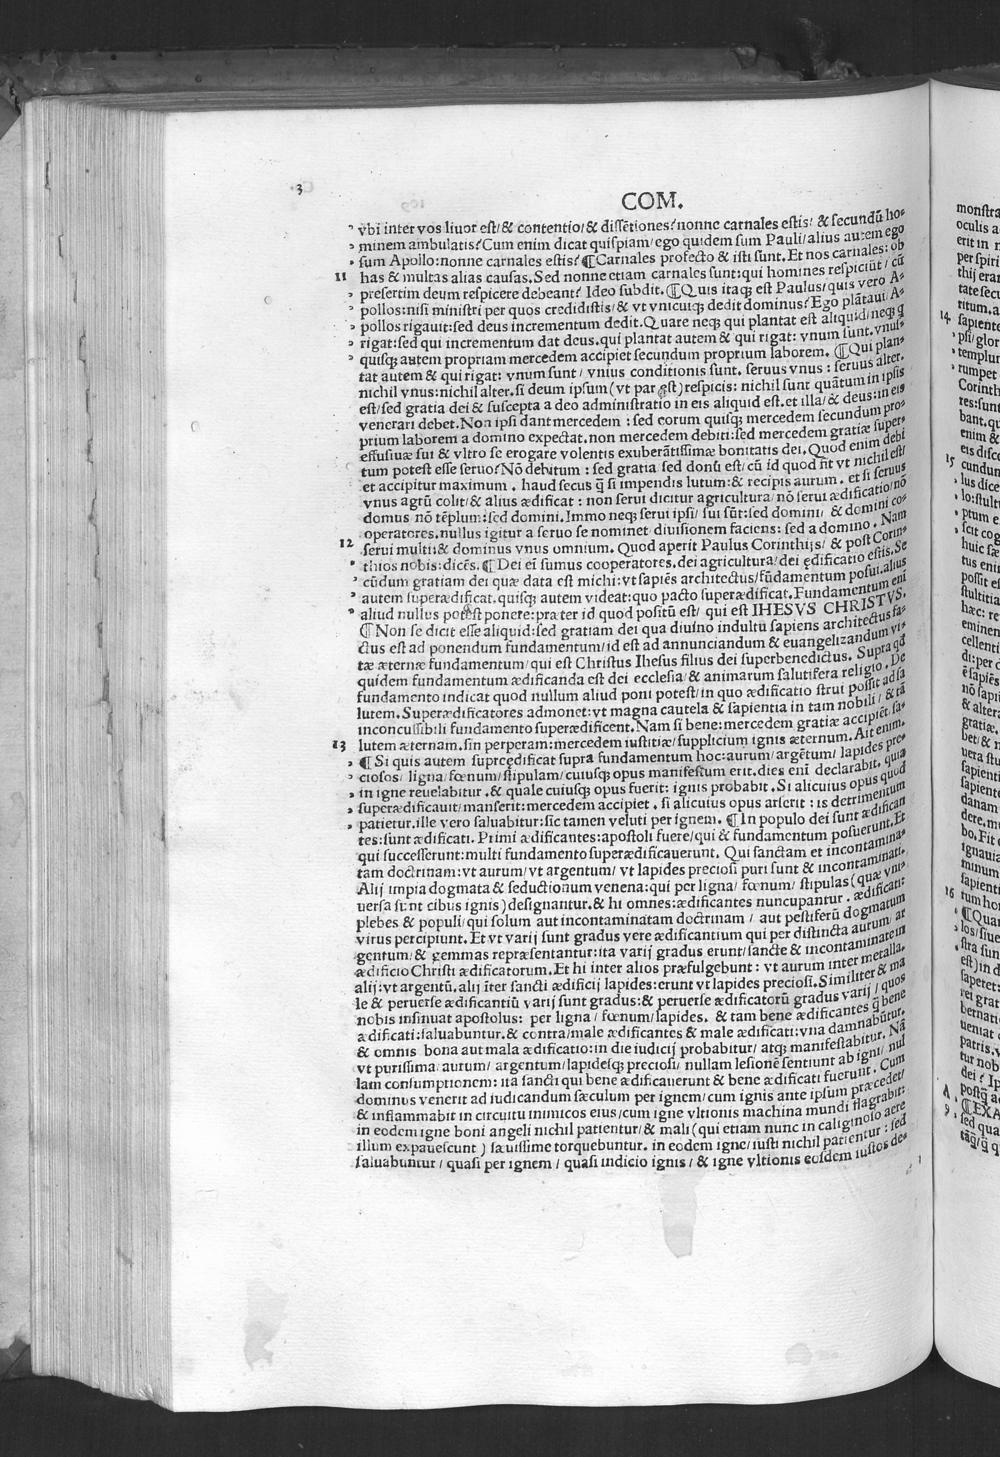 3
COM.
vbi inter vos liuor est/ & contentio/ & dissẽtiones? nonne carnales estis/ & secundũ ho-
minem ambulatis? Cum enim dicat quispiam/ ego quidem sum Pauli/ alius autem ego
sum Apollo: nonne carnales estis? ¶ Carnales profecto & isti sunt. Et nos carnales: ob
11 has & multas alias causas. Sed nonne etiam carnales sunt: qui homines respiciũt/ cũ
presertim deum respicere debeant? Ideo subdit. ¶ Quis itaqꝫ est Paulus/ quis vero A-
pollos: nisi ministri per quos credidistis/ & vt vnicuiqꝫ dedit dominus? Ego plãtaui A-
pollos rigauit: sed deus incrementum dedit. Quare neqꝫ qui plantat est aliquid/ neqꝫ q̃
rigat: sed qui incrementum dat deus. qui plantat autem & qui rigat: vnum sunt. vnus-
quisqꝫ autem propriam mercedem accipiet secundum proprium laborem. ¶ Qui plan-
tat autem & qui rigat: vnum sunt/ vnius conditionis sunt. seruus vnus: seruus alter.
nichil vnus: nichil alter. si deum ipsum (vt par est) respicis: nichil sunt quãtum in ipsis
est/ sed gratia dei & suscepta a deo administratio in eis aliquid est. et illa/ & deus: in eis
venerari debet. Non ipsi dant mercedem: sed eorum quisqꝫ mercedem secundum pro-
prium laborem a domino expectat. non mercedem debiti: sed mercedem gratiæ super-
effusiuæ sui & vltro se erogare volentis exuberãtissimæ bonitatis dei. Quod enim debi
tum potest esse seruo? Nõ debitum: sed gratia sed donũ est/ cũ id quod fit vt nichil est/
et accipitur maximum. haud secus q̃ si impendis lutum: & recipis aurum. et si seruus
vnus agrũ colit/ & alius ædificat: non serui dicitur agricultura/ nõ serui ædificatio/ nõ
domus nõ tẽplum: sed domini. Immo neqꝫ serui ipsi/ sui sũt: sed domini/ & domini co-
operatores. nullus igitur a seruo se nominet diuisionem faciens: sed a domino. Nam
12 serui multi: & dominus vnus omnium. Quod aperit Paulus Corinthijs/ & post Corin-
thios nobis: dicẽs. ¶ Dei eĩ sumus cooperatores. dei agricultura/ dei ędificatio estis. Se
cũdum gratiam dei quæ data est michi: vt sapiẽs architectus/ fũdamentum posui. alius
autem superædificat. quisqꝫ autem videat: quo pacto superædificat. Fundamentum enĩ
aliud nullus potest ponere: præter id quod positũ est/ qui est IHESVS CHRISTVS.
¶ Non se dicit esse aliquid: sed gratiam dei qua diuino indultu sapiens architectus fa-
ctus est ad ponendum fundamentum/ id est ad annunciandum & euangelizandum vi-
tæ æternæ fundamentum/ qui est Christus Ihesus filius dei superbenedictus. Supra qđ
quidem fundamentum ædificanda est dei ecclesia/ & animarum salutifera religio. De
fundamento indicat quod nullum aliud poni potest/ in quo ædificatio strui possit ad sa
lutem. Superædificatores admonet: vt magna cautela & sapientia in tam nobili/ & tã
inconcussibili fundamento superædificent. Nam si bene: mercedem gratiæ accipiẽt. sa-
13 lutem æternam. sin perperam: mercedem iustitiæ/ supplicium ignis æternum. Ait enim.
¶ Si quis autem supręędificat supra fundamentum hoc: aurum/ argẽtum/ lapides pre-
ciosos/ ligna/ fœnum/ stipulam/ cuiusqꝫ opus manifestum erit. dies enĩ declarabit. quia
in igne reuelabitur. & quale cuiusqꝫ opus fuerit: ignis probabit. Si alicuius opus quod
superædificauit/ manserit: mercedem accipiet. si alicuius opus arserit: is detrimentum
patietur. ille vero saluabitur: sic tamen veluti per ignem. ¶ In populo dei sunt ædifican
tes: sunt ædificati. Primi ædificantes: apostoli fuere/ qui & fundamentum posuerunt. Et
qui successerunt: multi fundamento superædificauerunt. Qui sanctam et incontamina-
tam doctrinam: vt aurum/ vt argentum/ vt lapides preciosi puri sunt & incontaminati.
Alij impia dogmata & seductionum venena: qui per ligna/ fœnum/ stipulas (quæ vni-
uersa sunt cibus ignis) designantur. & hi omnes: ædificantes nuncupantur. ædificati:
plebes & populi/ qui solum aut incontaminatam doctrinam/ aut pestiferũ dogmatum
virus percipiunt. Et vt varij sunt gradus vere ædificantium qui per distincta aurum/ ar
gentum/ & gemmas repræsentantur: ita varij gradus erunt/ sancte & incontaminate in
ædificio Christi ædificatorum. Et hi inter alios præfulgebunt: vt aurum inter metalla.
alij: vt argentũ. alij ĩter sancti ædificij lapides: erunt vt lapides preciosi. Similiter & ma
le & peruerse ædificantiũ varij sunt gradus: & peruerse ædificatorũ gradus varij/ quos
nobis insinuat apostolus: per ligna/ fœnum/ lapides. & tam bene ædificantes q̃ bene
ædificati: saluabuntur. & contra/ male ædificantes & male ædificati: vna damnabũtur.
& omnis bona aut mala ædificatio: in die iudicij probabitur/ atqꝫ manifestabitur. Nã
vt purissima aurum/ argentum/ lapidesqꝫ preciosi/ nullam lesionẽ sentiunt ab igni/ nul
lam consumptionem: ita sancti qui bene ædificauerunt & bene ædificati fuerunt. Cum
dominus venerit ad iudicandum sæculum per ignem/ cum ignis ante ipsum præcedet/
& inflammabit in circuitu inimicos eius/ cum igne vltionis machina mundi flagrabit:
in eodem igne boni angeli nichil patientur/ & mali (qui etiam nunc in caliginoso aere
illum expauescunt) sæuissime torquebuntur. in eodem igne/ iusti nichil patientur: sed
saluabuntur/ quasi per ignem/ quasi indicio ignis/ & igne vltionis eosdem iustos de-